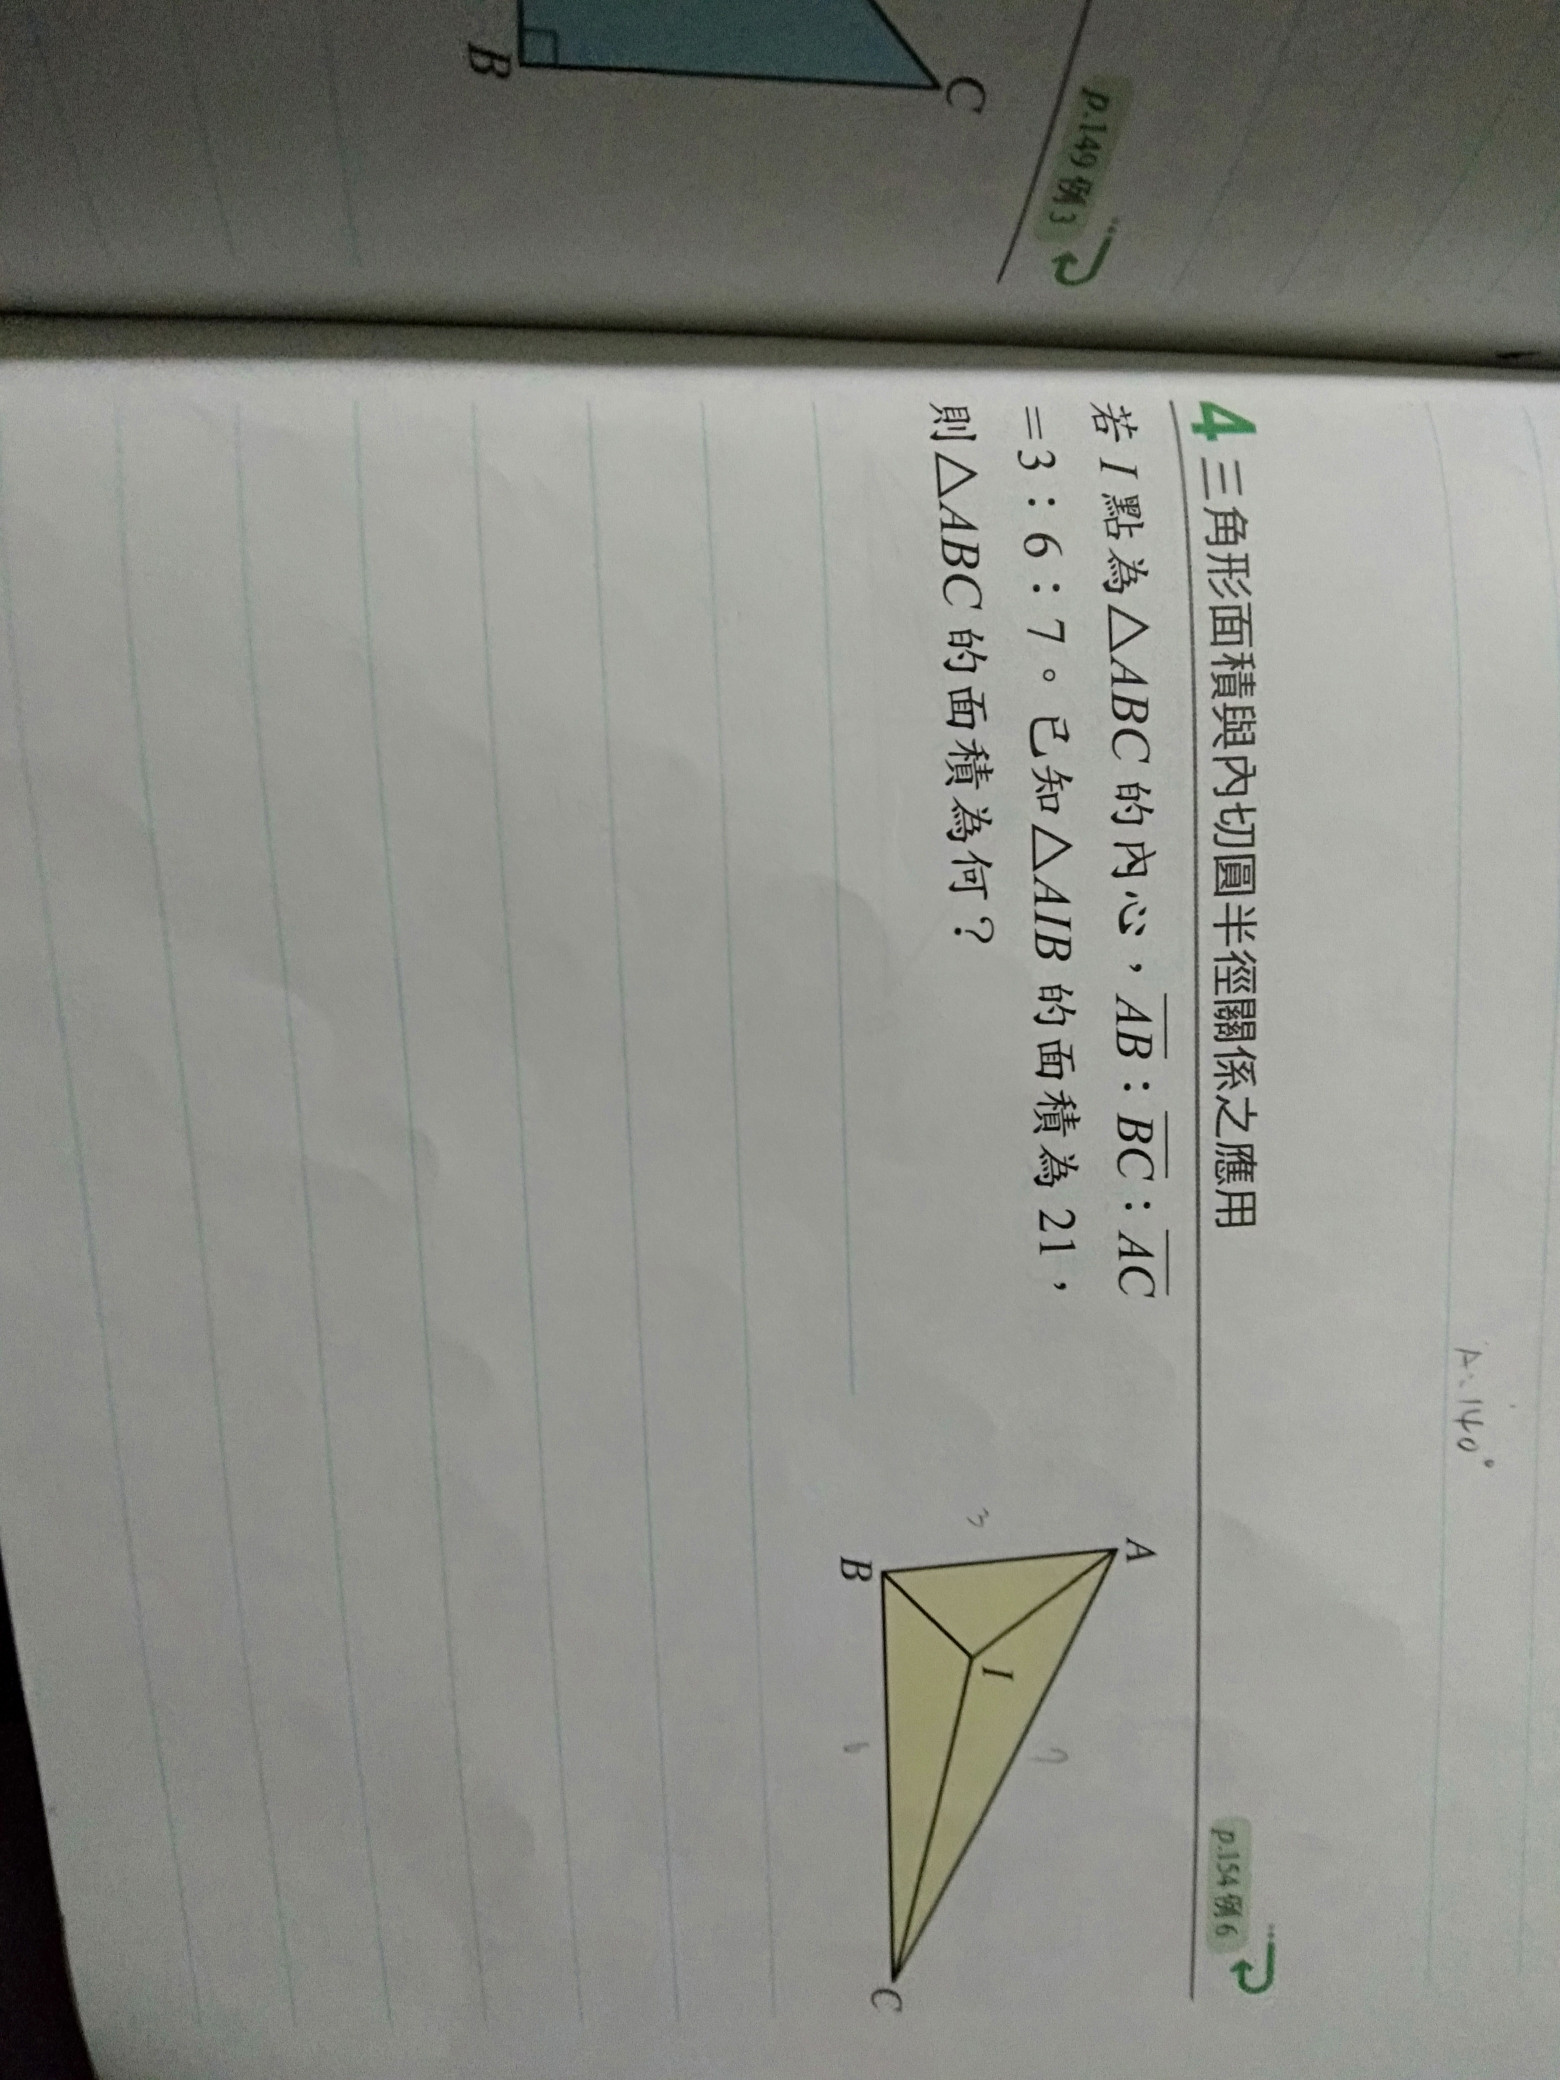 C
B
p.149 例3
A:140°
4 三角形面積與內切圓半徑關係之應用
p.154 例6
若 I 點為△ABC 的內心，AB：BC：AC
＝3：6：7。已知△AIB 的面積為 21，
則△ABC 的面積為何？
A
3
I
7
B
6
C